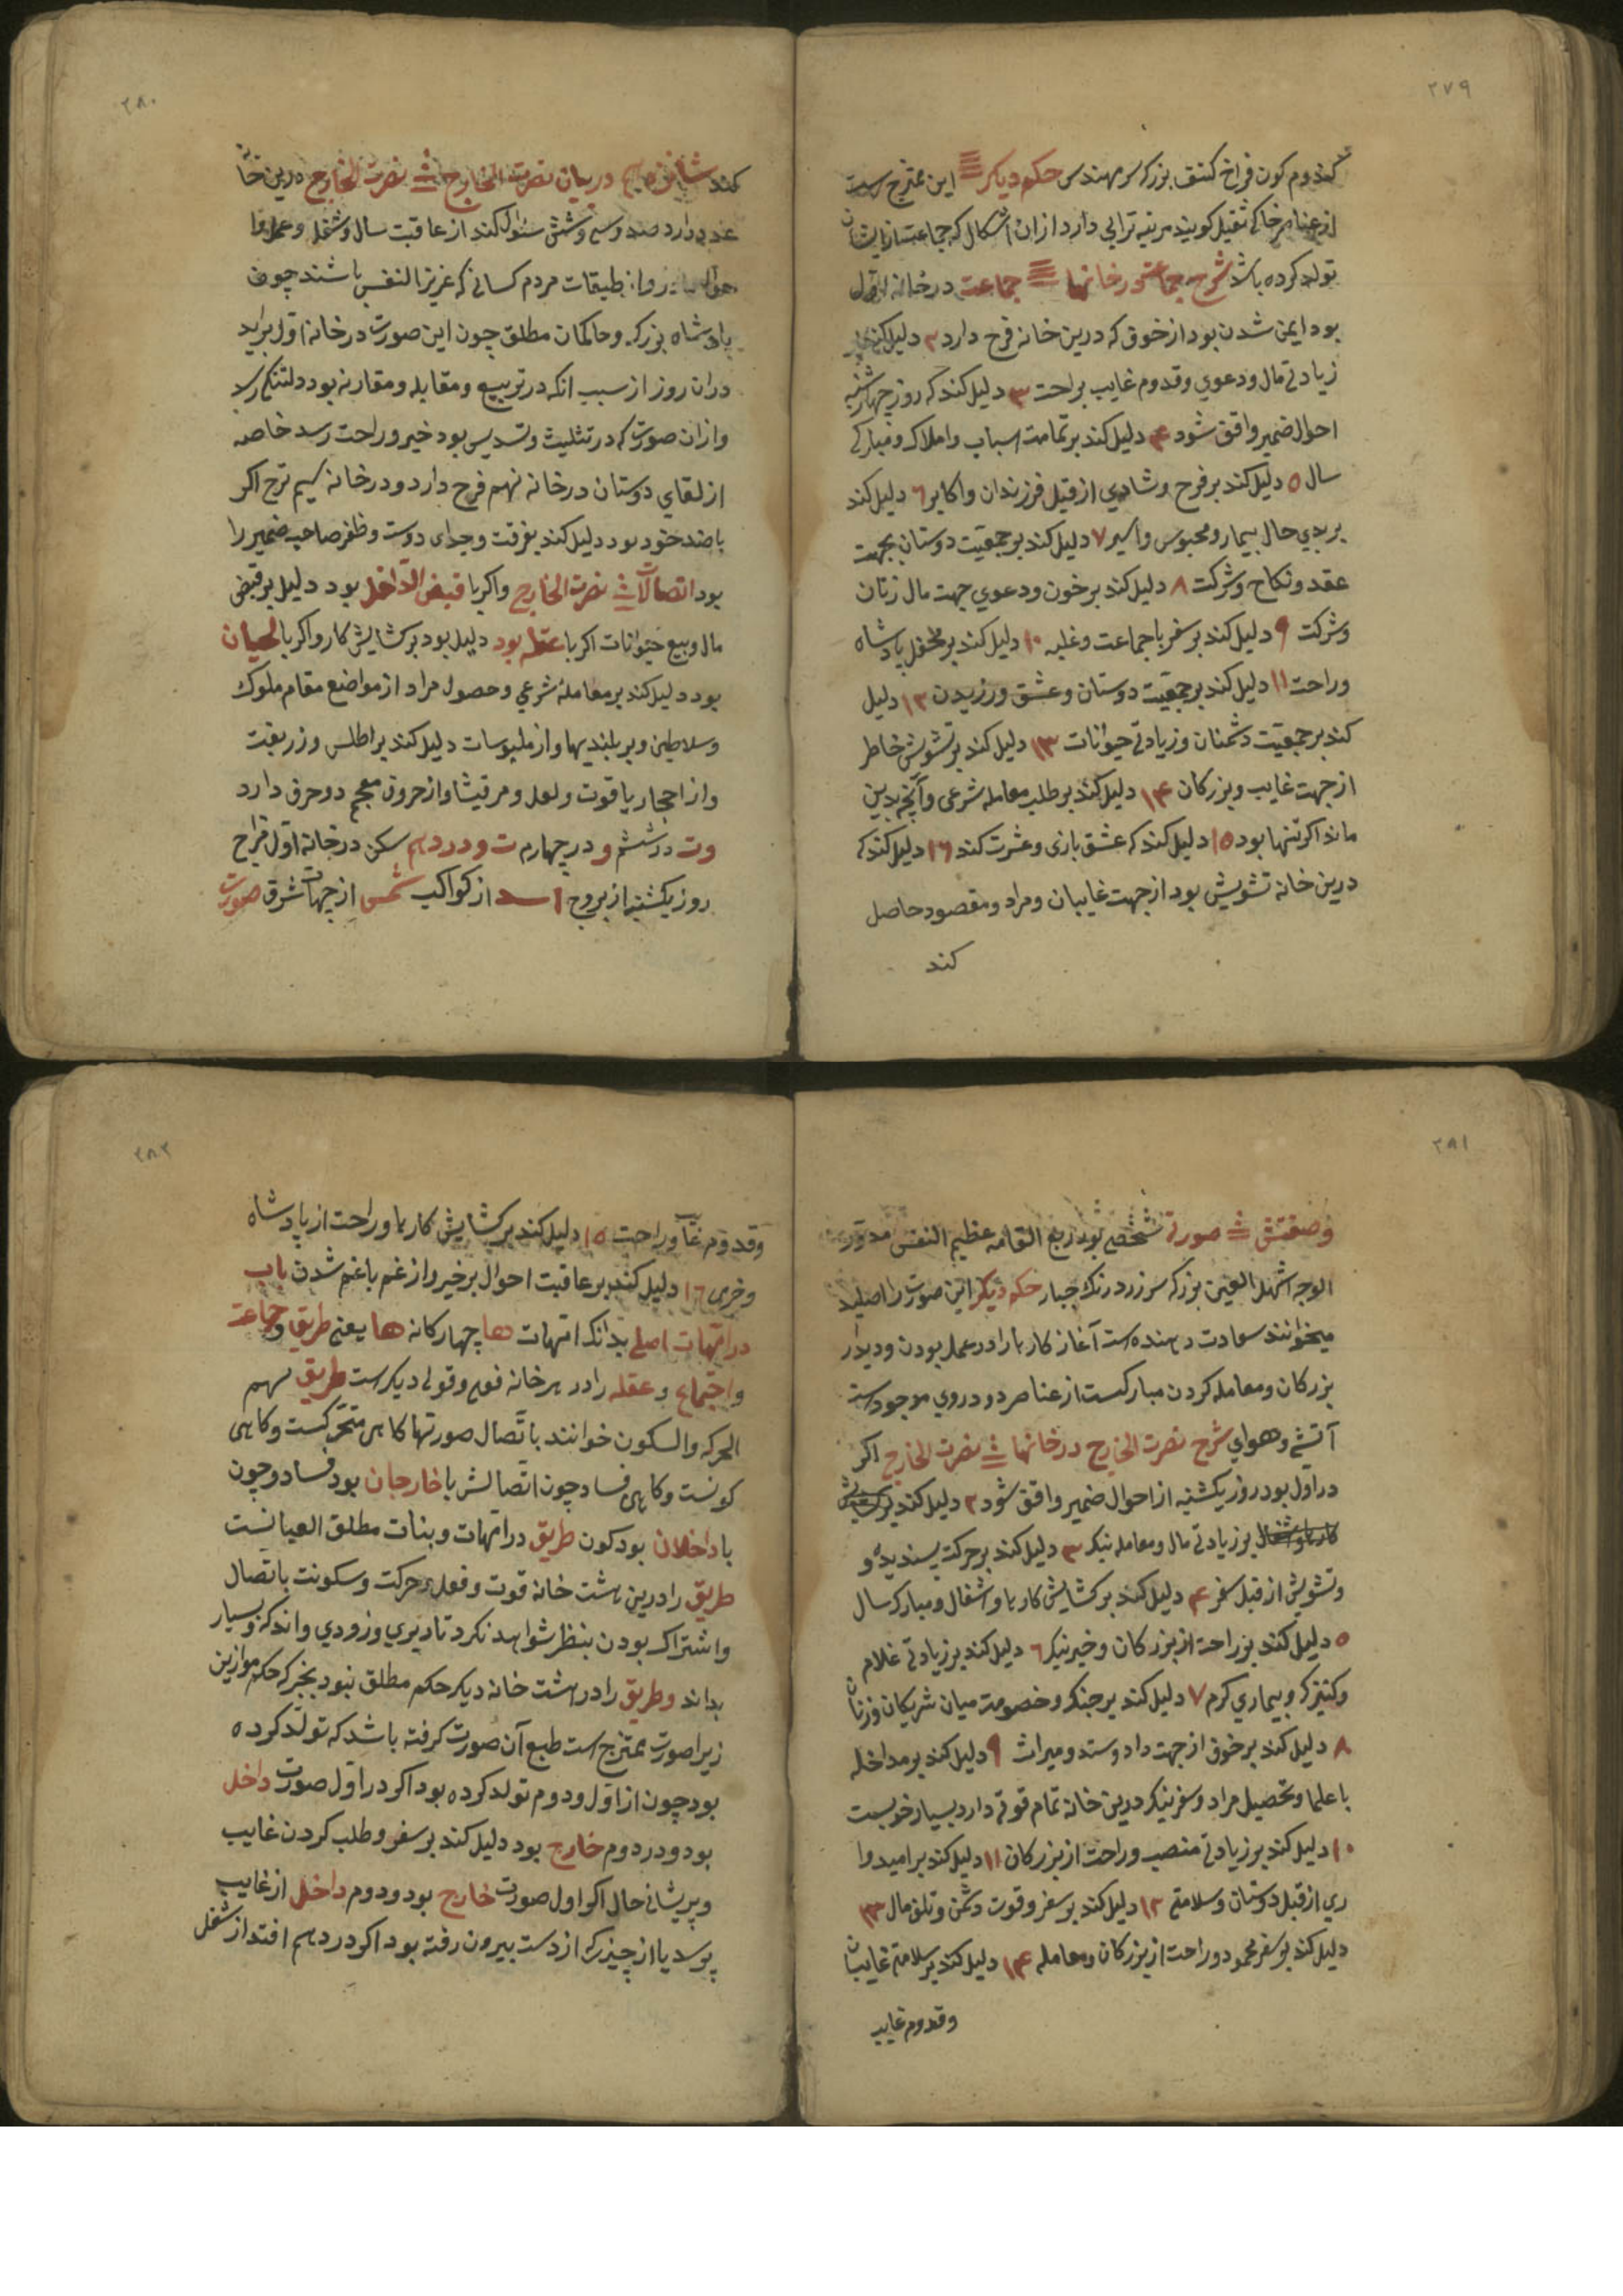 ۲۷۹
کندم کون فراخ کتف بزرک سر مهندس حکم دیکر این ممتزج است
از عناصر خاکی ثقیل کویند مرتبه ترابی دارد ازان اشکال که جماعت ازیشان
تولد کرده باشد شرح جماعت در خانها جماعت در خانه اول
بود ایمن شدن بود از خوف که درین خانه فرح دارد ۲ دلیل کند بر
زیادتی مال ودعوي وقدوم غایب براحت ۳ دلیل کند که روز چهارشنبه
احوال ضمیر واقف شود ۴ دلیل کند بر تمامت اسباب واملاک ومبارکی
سال ۵ دلیل کند بر فرح وشادي از قبل فرزندان واکابر ۶ دلیل کند
بر بدي حال بیمار ومحبوس واسیر ۷ دلیل کند بر جمعیت دوستان بجهت
عقد ونکاح وشرکت ۸ دلیل کند بر خون ودعوي جهت مال زنان
وشرکت ۹ دلیل کند بر سفر با جماعت وغلبه ۱۰ دلیل کند بر محفل پادشاه
وراحت ۱۱ دلیل کند بر جمعیت دوستان وعشق ورزیدن ۱۲ دلیل
کند بر جمعیت دشمنان وزیادتی حیوانات ۱۳ دلیل کند بر تشویش خاطر
از جهت غایب وبزرکان ۱۴ دلیل کند بر طلب معامله شرعی وآنچه بدین
ماند اکر تنها بود ۱۵ دلیل کند که عشق بازی وعشرت کند ۱۶ دلیل کند که
درین خانه تشویش بود از جهت غایبان ومراد ومقصود حاصل
کند
۲۸۰
کند در بیان نصرت الخارج نصرت الخارج درین خانه
عدد دارد صد وسی وشش سؤال کند از عاقبت سال وشغل وعمل
از طبقات مردم کسانی که عزیز النفس باشند چون
پادشاه بزرک وحاکمان مطلق چون این صورت در خانه اول براید
دران روز از سبب انکه در تربیع ومقابله ومقارنه بود دلتنکی رسد
وازان صورت که در تثلیث وتسدیس بود خیر وراحت رسد خاصه
از لقاي دوستان در خانه نهم فرح دارد ودر خانه سیم ترح اکر
با ضد خود بود دلیل کند بفرقت وجدای دوست وظفر صاحب ضمیر را
بود اتصالات نصرت الخارج واکر با قبض الداخل بود دلیل بر قبض
مال وبیع حیوانات اکر با عقله بود دلیل بود بر کشایش کار واکر با لحیان
بود دلیل کند بر معاملهٔ شرعي وحصول مراد از مواضع مقام ملوک
وسلاطین وبر بلندیها واز ملبوسات دلیل کند بر اطلس وزربفت
واز احجار یاقوت ولعل ومرقیشا واز حروف معجم دو حرف دارد
وت در ششم و در چهارم ت و در دهم سکن در خانه اول فراح
روز یکشنبه از بروج اسد از کواکب شمس از جهات شرق صورت
۲۸۱
وصفتش صورت شخصی بود ربع القامه عظیم النفس مدور
الوجه اشهل العین بزرک سر زرد رنک جبار حکم دیکر این صورت را اصلید
میخوانند سعادت دهنده است آغاز کارها را در عمل بودن ودیدار
بزرکان ومعامله کردن مبارکست از عناصر دو دروي موجودست
آتشي وهواي شرح نصرت الخارج در خانها نصرت الخارج اکر
در اول بود روز یکشنبه از احوال ضمیر واقف شود ۲ دلیل کند
بر زیادتی مال ومعامله نیک ۳ دلیل کند بر حرکت پسندیده و
وتشویش از قبل سفر ۴ دلیل کند بر کشایش کارها واشغال ومبارک سال
۵ دلیل کند بر راحت از بزرکان وخبر نیک ۶ دلیل کند بر زیادتی غلام
وکنیزک وبیماري کرم ۷ دلیل کند بر جنک وخصومت میان شریکان وزنان
۸ دلیل کند بر خوف از جهت داد وستد ومیراث ۹ دلیل کند بر مداخله
با علما وتحصیل مراد وسفر نیک درین خانه تمام قوتی دارد بسیار خوبست
۱۰ دلیل کند بر زیادتی منصب وراحت از بزرکان ۱۱ دلیل کند بر امیدوا
ري از قبل دوستان وسلامتی ۱۲ دلیل کند بر سفر وقوت دشمن وتلف مال ۱۳
دلیل کند بر سفر محمود وراحت از بزرکان ومعامله ۱۴ دلیل کند بر سلامتی غایبان
وقدوم غایب
۲۸۲
وقدوم غایب وراحت ۱۵ دلیل کند بر کشایش کارها وراحت از پادشاه
وخرمی ۱۶ دلیل کند بر عاقبت احوال بر خیر واز غم با غم شدن باب
در امهات اصلی بدانکه امهات ها چهارکانه ها یعنی طریق وجماعت
واجتماع وعقله را در هر خانه فعلی وقولی دیکرست طریق سهم
الحرکه والسکون خوانند باتصال صورتها کاهی متحرکست وکاهی
کونست وکاهی فساد چون اتصالش با خارجان بود فساد وچون
با داخلان بود کون طریق در امهات وبنات مطلق العیانست
طریق را درین هشت خانه قوت وفعل وحرکت وسکونت باتصال
واشتراک بودن بنظر شواهد نکرد تا دیري وزودي واندک وبسیار
بداند وطریق را در هشت خانه دیکر حکم مطلق نبود بجز که حکم موازین
زیرا صورت ممتزج است طبع آن صورت کرفته باشد که تولد کرده
بود چون از اول ودوم تولد کرده بود اکر در اول صورت داخل
بود ودر دوم خارج بود دلیل کند بر سفر وطلب کردن غایب
وپریشانی حال اکر اول صورت خارج بود ودوم داخل از غایب
پرسد یا از چیزی که از دست بیرون رفته بود اکر در دهم افتد از شغل